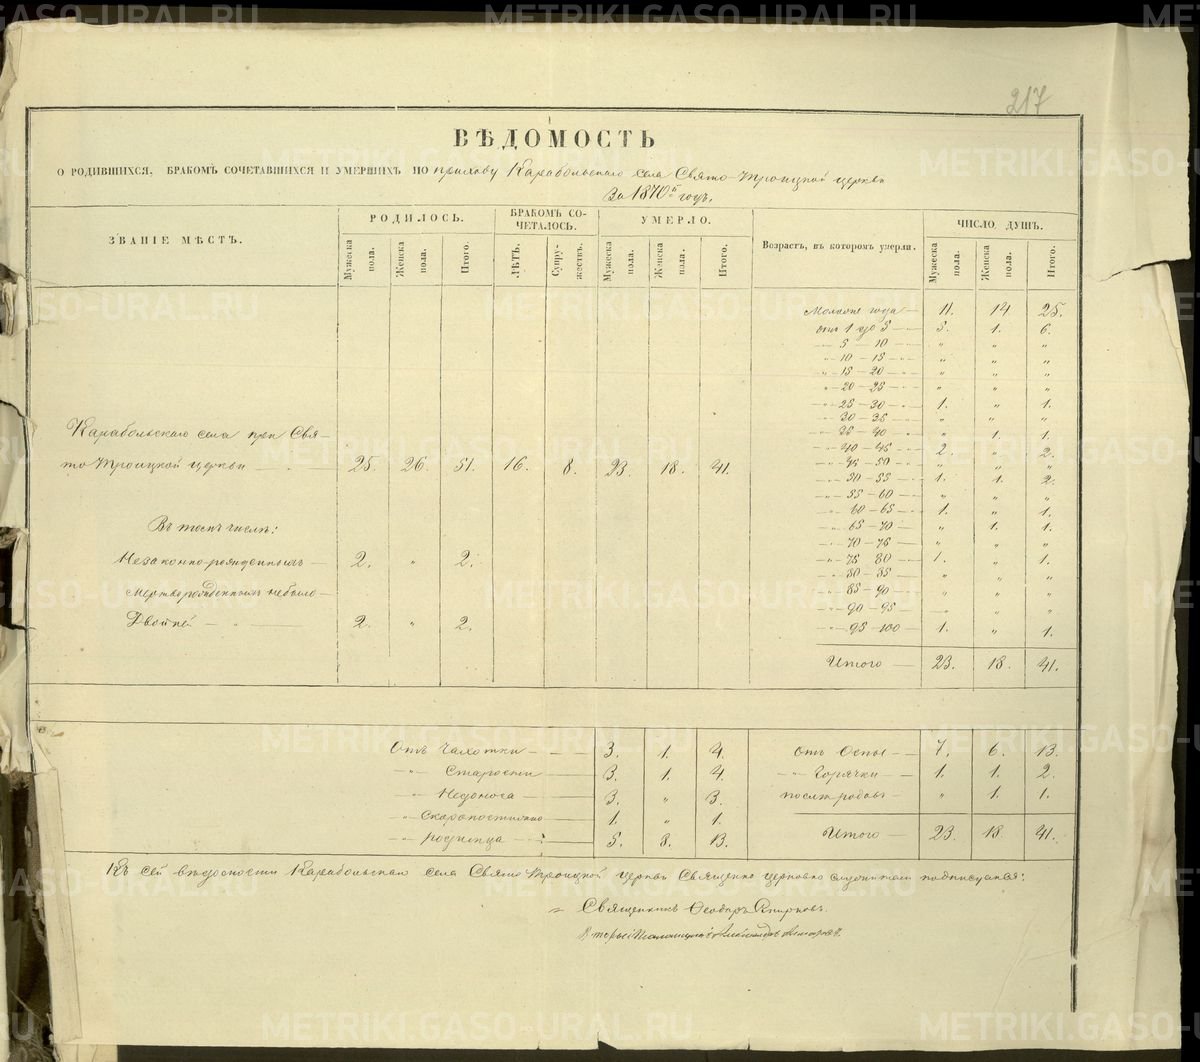 217
ВѢДОМОСТЬ
О РОДИВШИХСЯ, БРАКОМЪ СОЧЕТАВШИХСЯ И УМЕРШИХЪ ПО приходу Карабольскаго села Свято-Троицкой церкви
За 1870й годъ.
ЗВАНІЕ МѢСТЪ. РОДИЛОСЬ. БРАКОМЪ СОЧЕТАЛОСЬ. УМЕРЛО. Возрастъ, въ которомъ умерли. ЧИСЛО ДУШЪ.
Мужеска пола. Женска пола. Итого. ЛѢТЪ. Супружествъ. Мужеска пола. Женска пола. Итого. Мужеска пола. Женска пола. Итого.
Моложе года — 11. 14. 25.
отъ 1 до 5 — 5. 1. 6.
" 5 — 10 — " " "
" 10 — 15 — " " "
" 15 — 20 — " " "
" 20 — 25 — " " "
" 25 — 30 — 1. " 1.
" 30 — 35 — " " "
" 35 — 40 — " 1. 1.
" 40 — 45 — 2. " 2.
" 45 — 50 — " " "
" 50 — 55 — 1. 1. 2.
" 55 — 60 — " " "
" 60 — 65 — 1. " 1.
" 65 — 70 — " 1. 1.
" 70 — 75 — " " "
" 75 — 80 — 1. " 1.
" 80 — 85 — " " "
" 85 — 90 — " " "
" 90 — 95 — " " "
" 95 — 100 — 1. " 1.
Итого — 23. 18. 41.
Карабольскаго села при Свя-
то Троицкой церкви — 25. 26. 51. 16. 8. 23. 18. 41.
Въ томъ числѣ:
Незаконно-рожденныхъ — 2. " 2.
Мертворожденныхъ небыло —
Двойней — " — 2. " 2.
Отъ Чахотки — 3. 1. 4. отъ Оспы — 7. 6. 13.
" Старости — 3. 1. 4. " Горячки — 1. 1. 2.
" Недоноса — 3. " 3. послѣ родовъ — " 1. 1.
" Скоропостижно — 1. " 1.
" родимца — 5. 8. 13. Итого — 23. 18. 41.
Къ сей вѣдомости Карабольскаго села Свято Троицкой церкви Священно церковно служители подписуемся:
Священникъ Ѳеодоръ